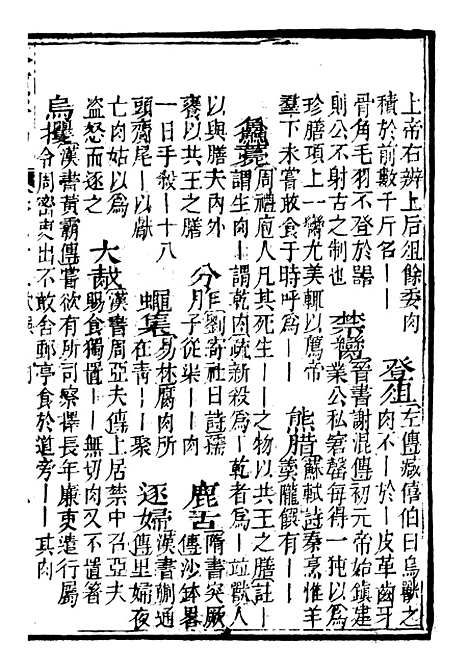 上帝右辨上后俎餘委肉
積於前數千斤名——
登俎
左傳臧僖伯曰鳥獸之
肉不—於—皮革齒牙
骨角毛羽不登於器
則公不射古之制也
禁臠
晉書謝混傳初元帝始鎮建
業公私窘罄每得一㹠以為
珍膳項上一臠尤美輒以薦帝
羣下未嘗敢食于時呼為——
熊腊
蘇軾詩秦烹惟羊
羮隴饌有——
鱻薧
周禮庖人凡其死生——之物以共王之膳註—
謂生肉—謂乾肉疏新殺為—乾者為—竝獸人
以與膳夫內外
饔以共王之膳
分
劉寄社日詩孺
子從渠——肉
鹿舌
隋書突厥
傳沙鉢畧
一日手殺—十八
頭齎尾—以獻
蛆集
易林腐肉所
在青——聚
逐婦
漢書蒯通
傳里婦夜
亡肉姑以為
盜怒而逐之
大胾
漢書周亞夫傳上居禁中召亞夫
賜食獨置——無切肉又不置箸
烏攫
漢書黃霸傳嘗欲有所司察擇長年廉吏遣行屬
令周密吏出不敢舍郵亭食於道旁——其肉